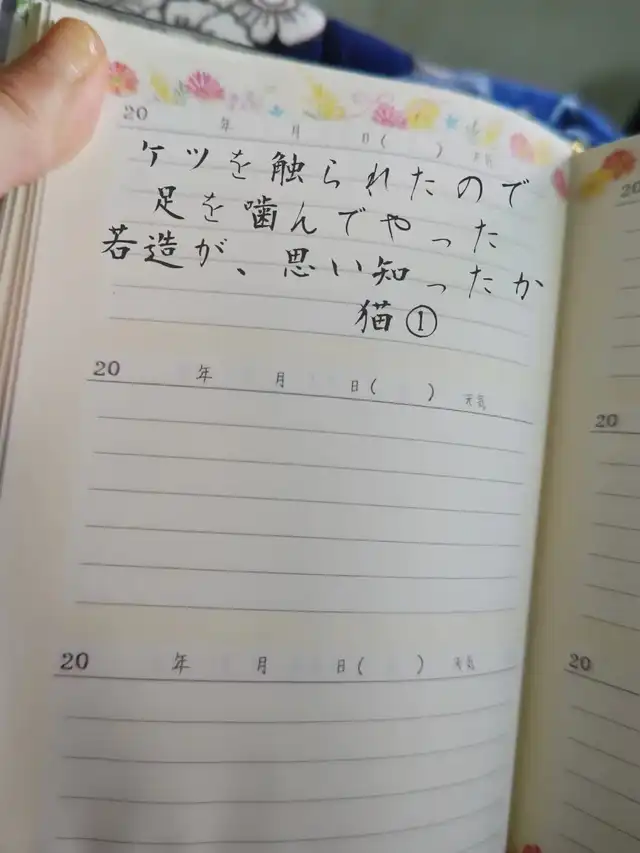 20 年 月 日( ) 天気
ケツを触られたので
足を噛んでやった
若造が、思い知ったか
猫①
20 年 月 日( ) 天気
20 年 月 日( ) 天気
20
20
20